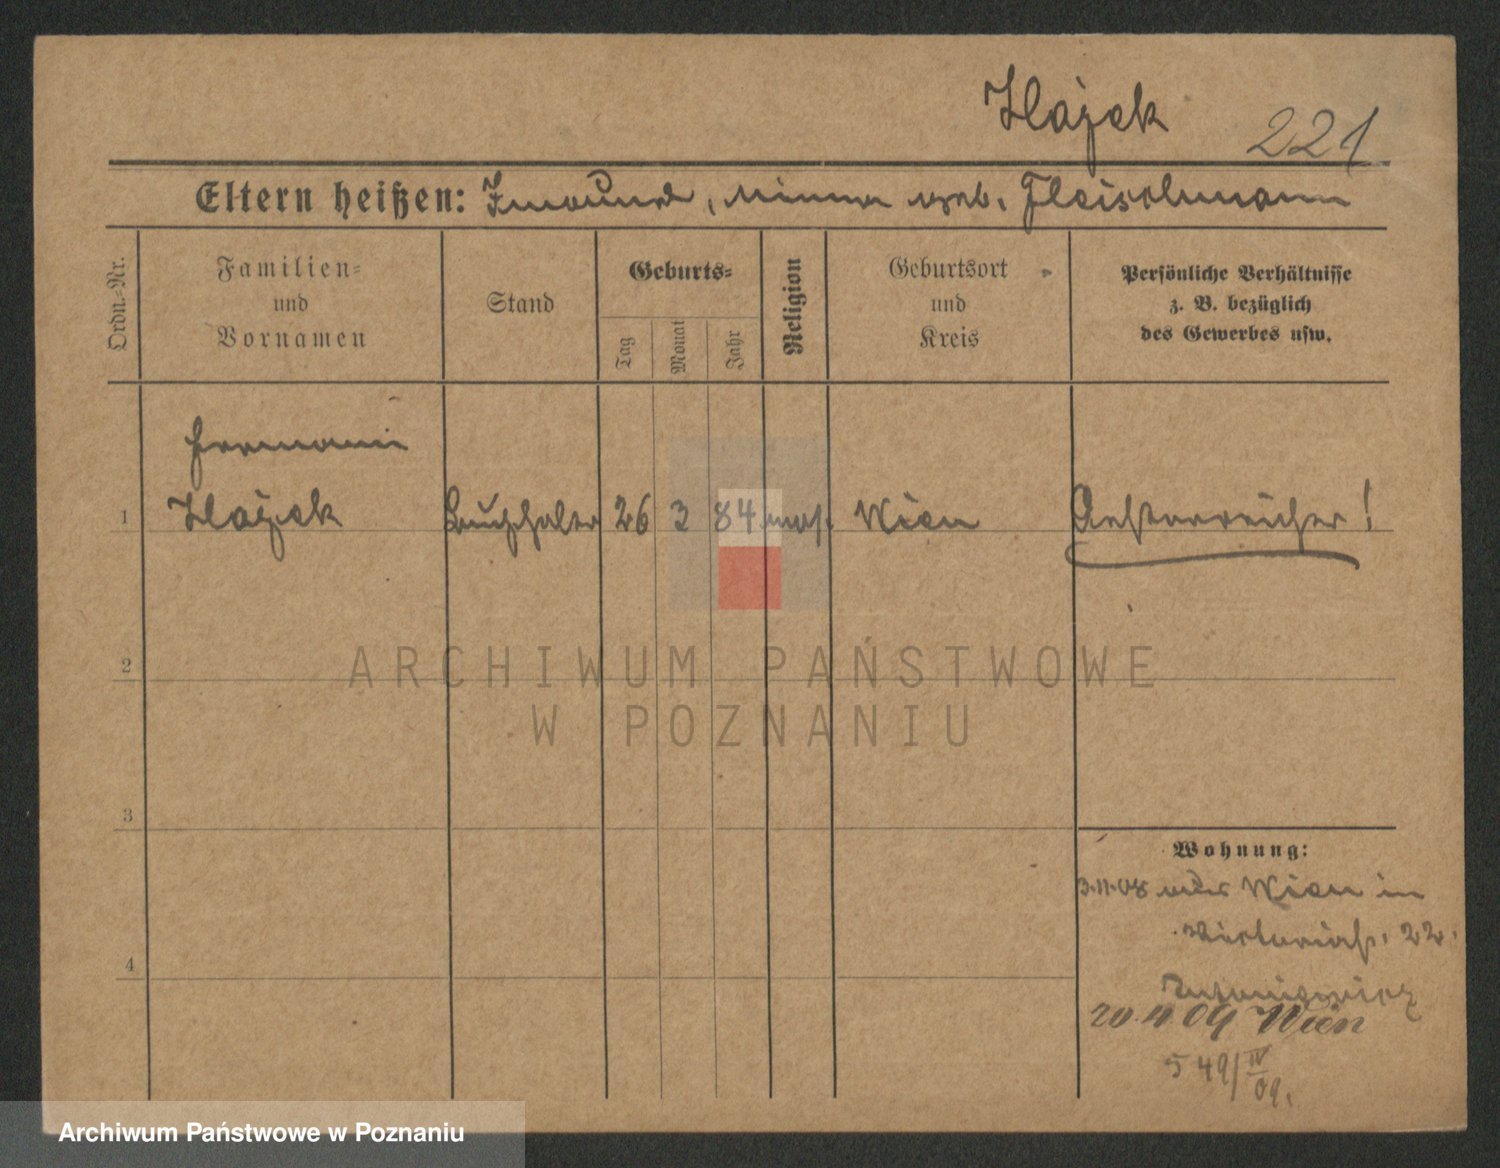 Hajek
221
Eltern heißen: Fleischmann
Ordn.-Nr.
Familien-
und
Vornamen
Stand
Geburts-
Tag
Monat
Jahr
Religion
Geburtsort
und
Kreis
Persönliche Verhältnisse
z. B. bezüglich
des Gewerbes usw.
Hermann
1 Hajek Buchhalter 26 3 84 mos. Wien Oesterreicher!
2
3
4
Wohnung:
3.11.08 Wien in
Victoriastr. 22.
20. 4. 09 Wien
549/IV
09.
ARCHIWUM PAŃSTWOWE
W POZNANIU
Archiwum Państwowe w Poznaniu